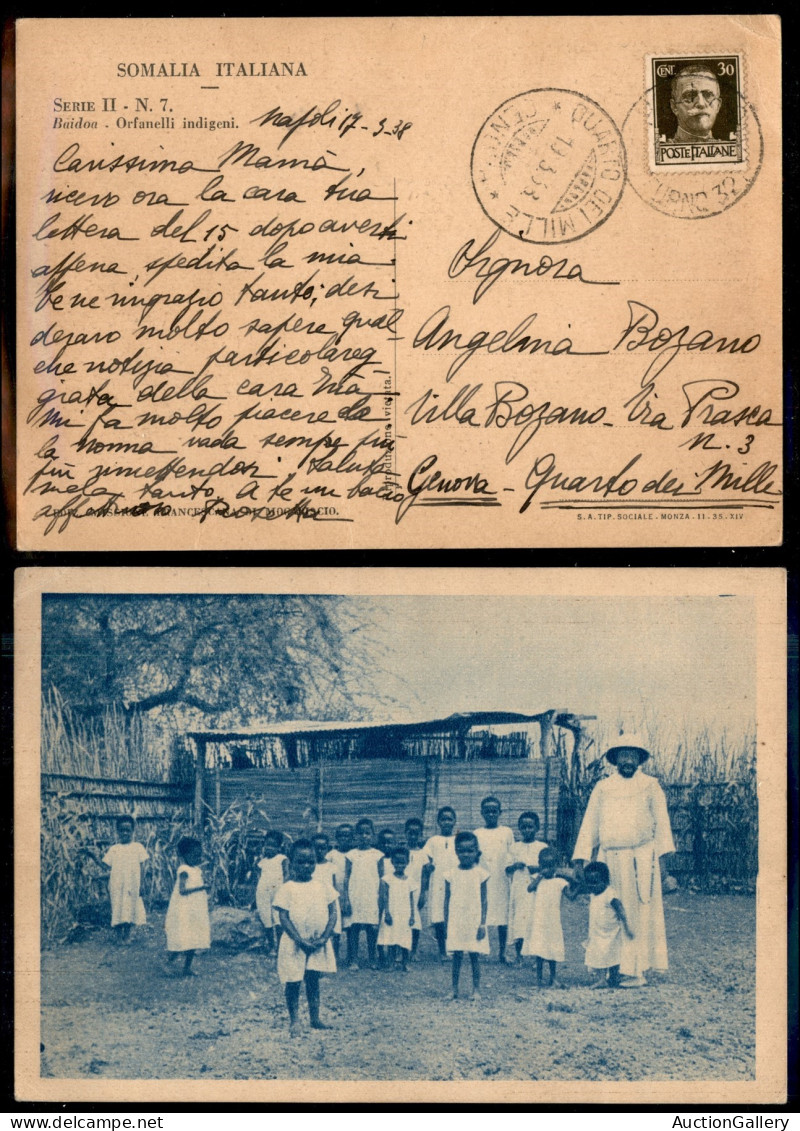 SOMALIA ITALIANA
SERIE II - N. 7.
Baidoa - Orfanelli indigeni.
Napoli 17-3-38
Carissima Mamà,
ricevo ora la cara tua
lettera del 15 dopo averti
appena spedita la mia.
Te ne ringrazio tanto; desi
deravo molto sapere qual-
che notizia particolareg
giata della cara
Mi fa molto piacere che
la nonna vada sempre più
più rimettendosi. Saluta
mela tanto. A te un bacio
aff
Riproduzione vietata.
CENT. 30
POSTE ITALIANE
QUARTO DEI MILLE
19.3.38
Signora
Angelina Bozano
Villa Bozano - Via Prasca
n. 3
Genova - Quarto dei Mille
S. A. TIP. SOCIALE - MONZA - 11-35-XIV
www.AuctionGallery